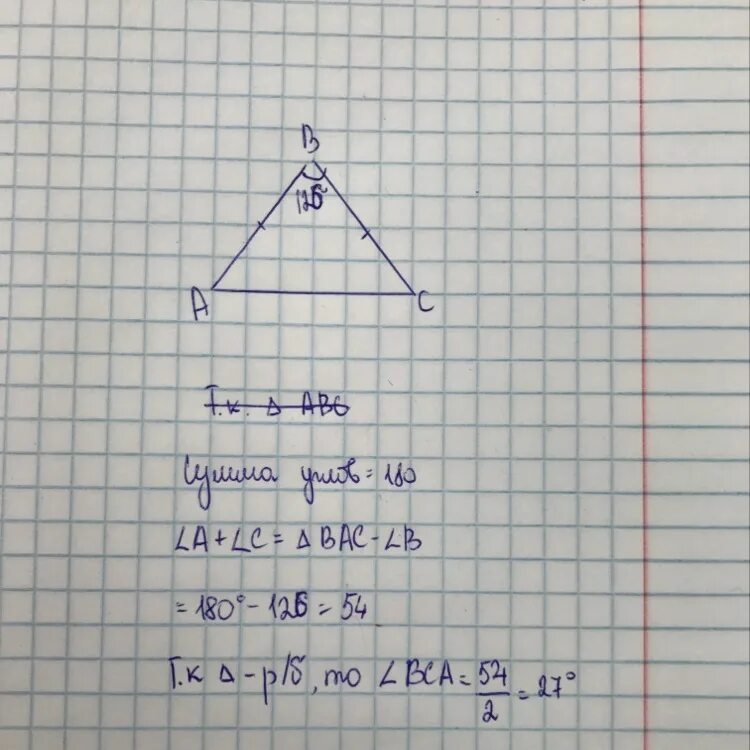 B
126°
A
C
Т.к. Δ ABC
Сумма углов = 180
∠A + ∠C = Δ BAC - ∠B
= 180° - 126 = 54
Т.к Δ - р/б, то ∠BCA = 54/2 = 27°